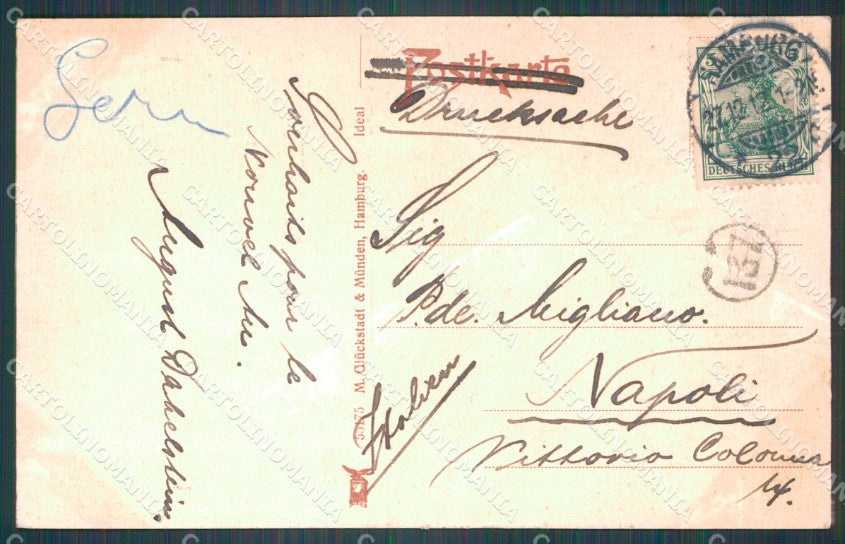 Postkarte
Drucksache
HAMBURG
27.12.12. 1-2N.
DEUTSCHES REICH
137
Sig
P. de. Migliano.
Napoli
Vittorio Colonna
14.
Italien
Souhaits pour le
Nouvel An.
August Dahelstein,
Ideal
M. Glückstadt & Münden, Hamburg.
CARTOLINOMANIA